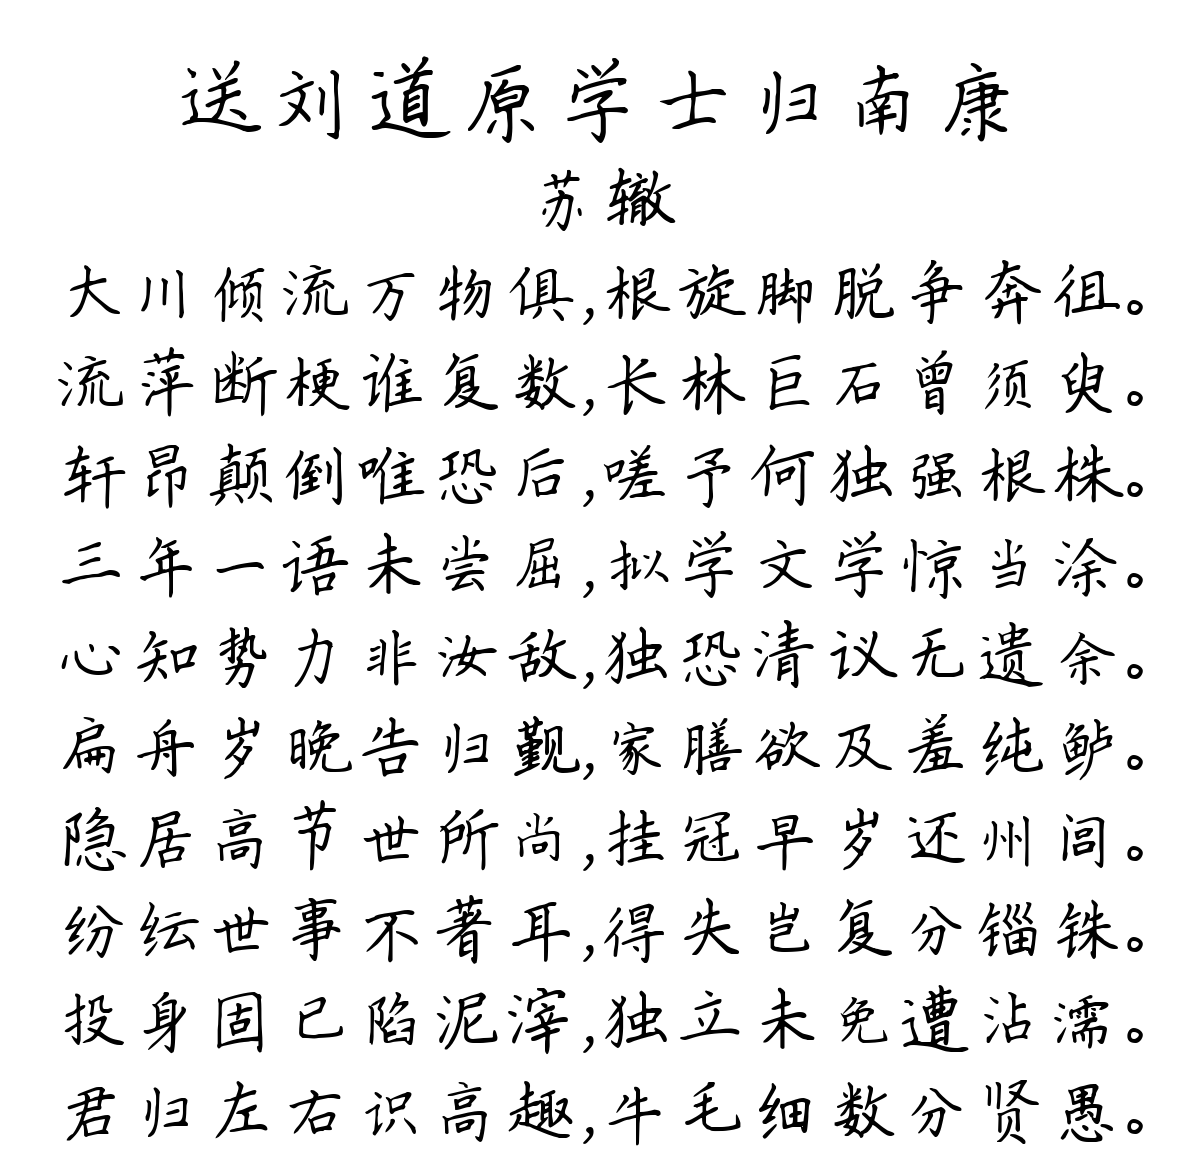 送刘道原学士归南康
苏辙
大川倾流万物俱,根旋脚脱争奔徂。
流萍断梗谁复数,长林巨石曾须臾。
轩昂颠倒唯恐后,嗟予何独强根株。
三年一语未尝屈,拟学文学惊当涂。
心知势力非汝敌,独恐清议无遗余。
扁舟岁晚告归觐,家膳欲及羞纯鲈。
隐居高节世所尚,挂冠早岁还州闾。
纷纭世事不著耳,得失岂复分锱铢。
投身固已陷泥滓,独立未免遭沾濡。
君归左右识高趣,牛毛细数分贤愚。